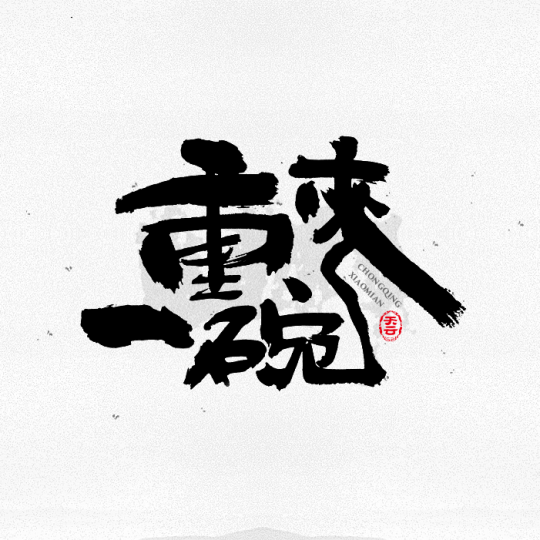 重來
一碗
CHONGQING
XIAOMIAN